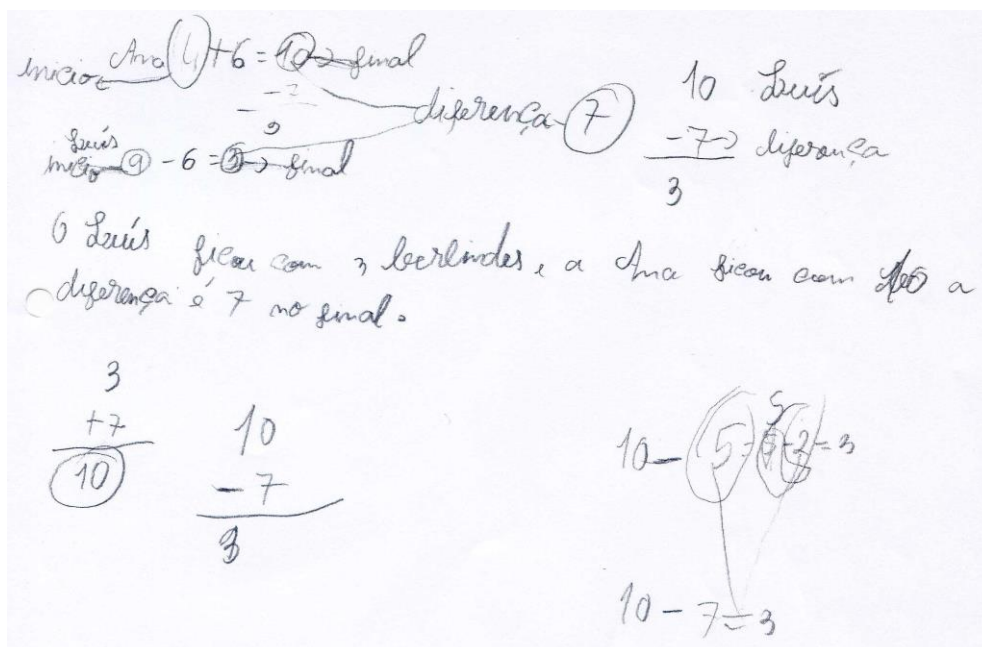 Ana 4 + 6 = 10 → final
Inicio
diferença 7
Luís
Inicio 9 - 6 = 3 → final
10 Luís
- 7 → diferença
3
O Luís ficou com 3 berlindes, a Ana ficou com 10 a
diferença é 7 no final.
3
+ 7
10
10
- 7
3
10 - 5 = 5 - 2 = 3
10 - 7 = 3